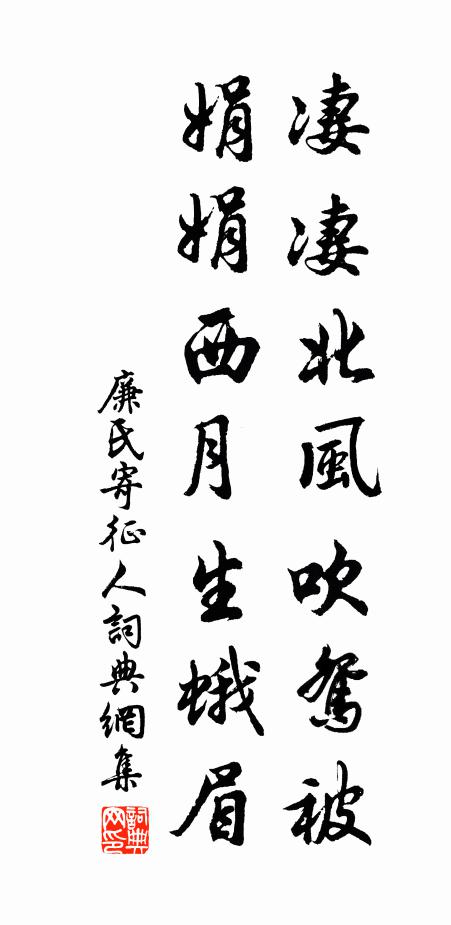 凄凄北風吹鴛被
娟娟西月生蛾眉
廉氏寄征人詞典網集
詞典網印